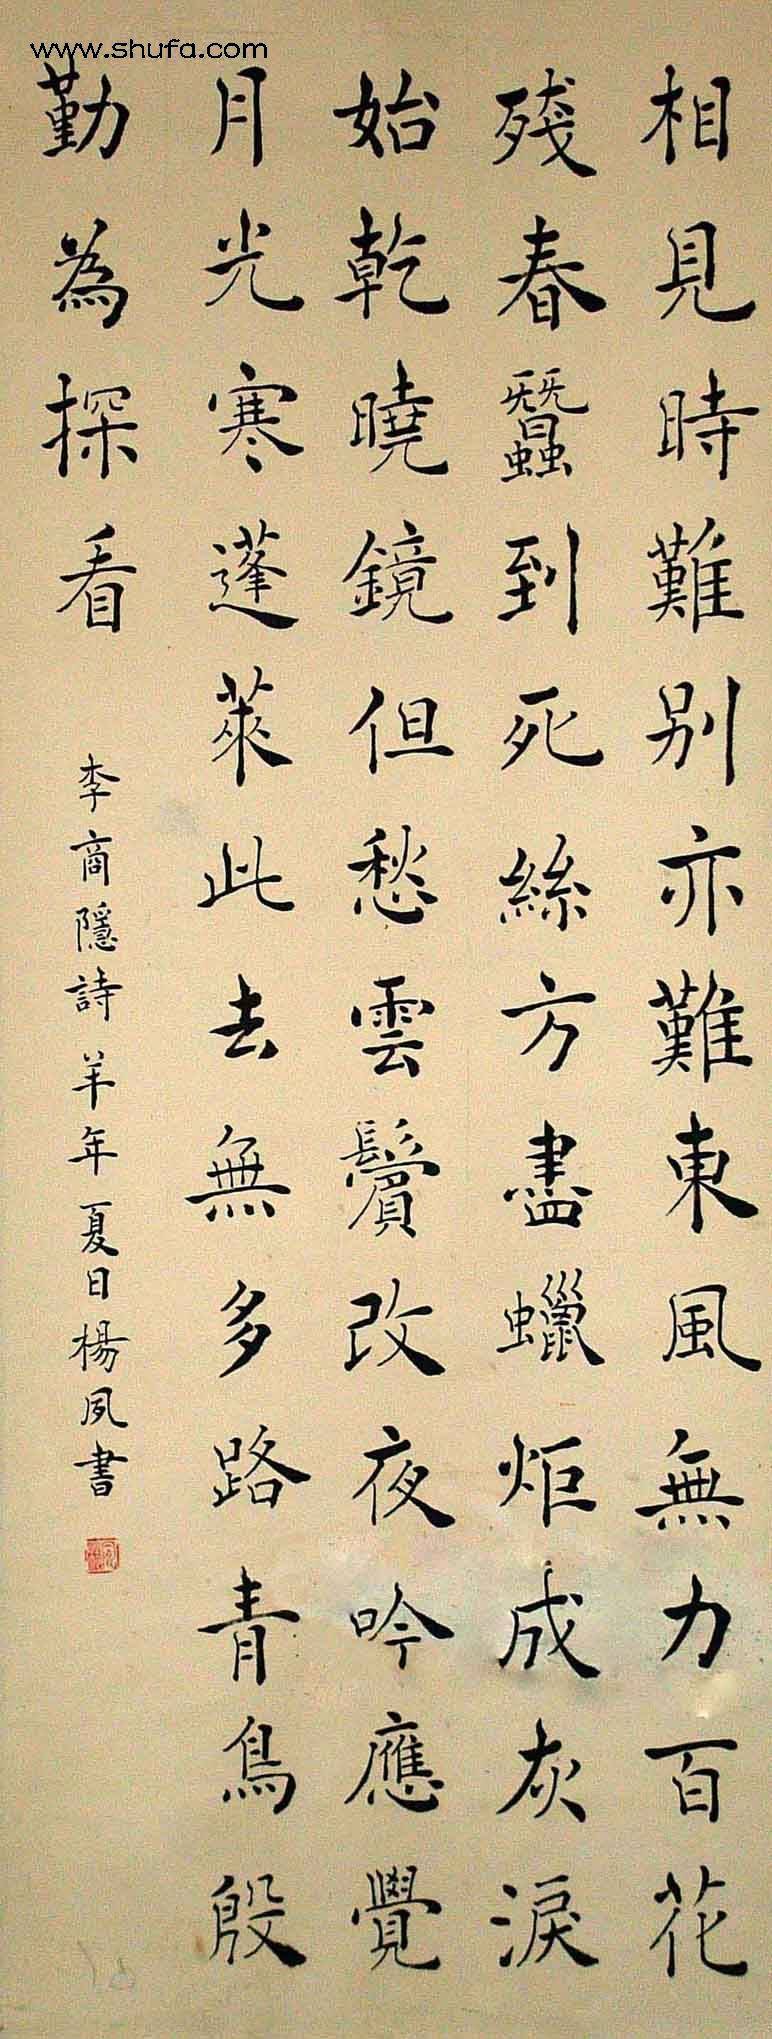 www.shufa.com
相見時難别亦難東風無力百花
殘春蠶到死絲方盡蠟炬成灰淚
始乾曉鏡但愁雲鬢改夜吟應覺
月光寒蓬萊此去無多路青鳥殷
勤為探看
李商隱詩羊年夏日楊夙書